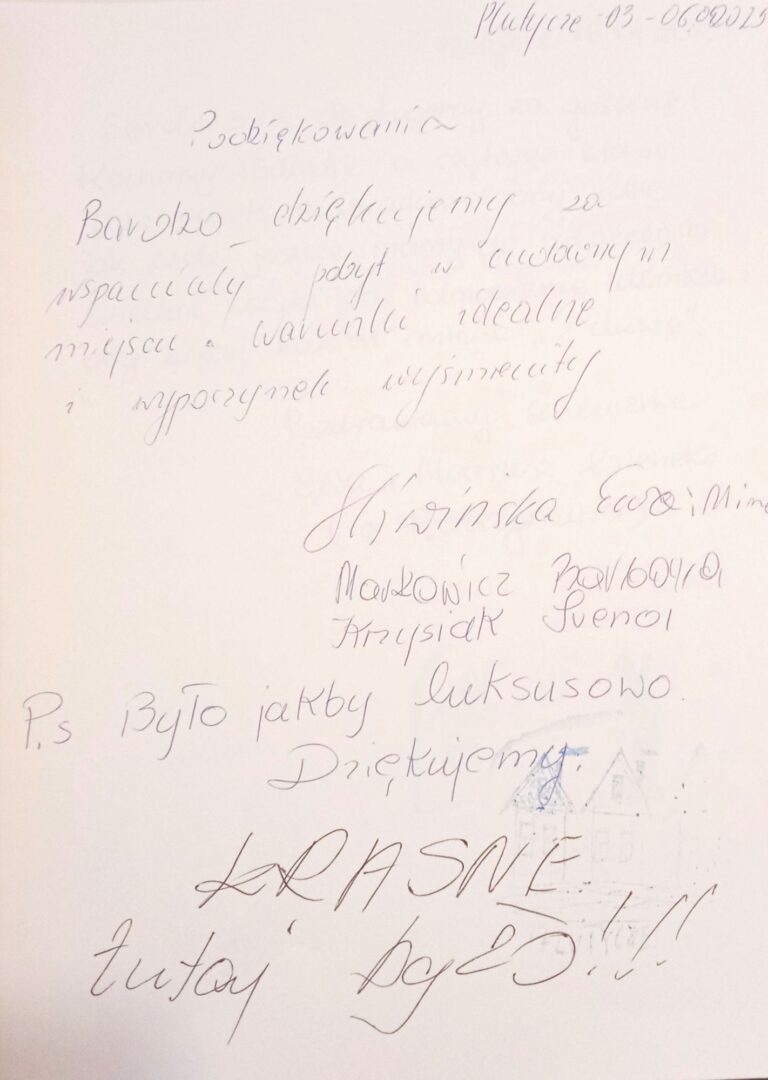 Plutycze 03-06.08.2025
Podziękowania
Bardzo dziękujemy za
wspaniały pobyt w cudownym
miejscu. warunki idealne
i wypoczynek wyśmienity
Śliwińska Ewa i
Markowicz Barbara
Krzysiak
P.s Było jakby luksusowo.
Dziękujemy.
KRASNE
tutaj było!!!